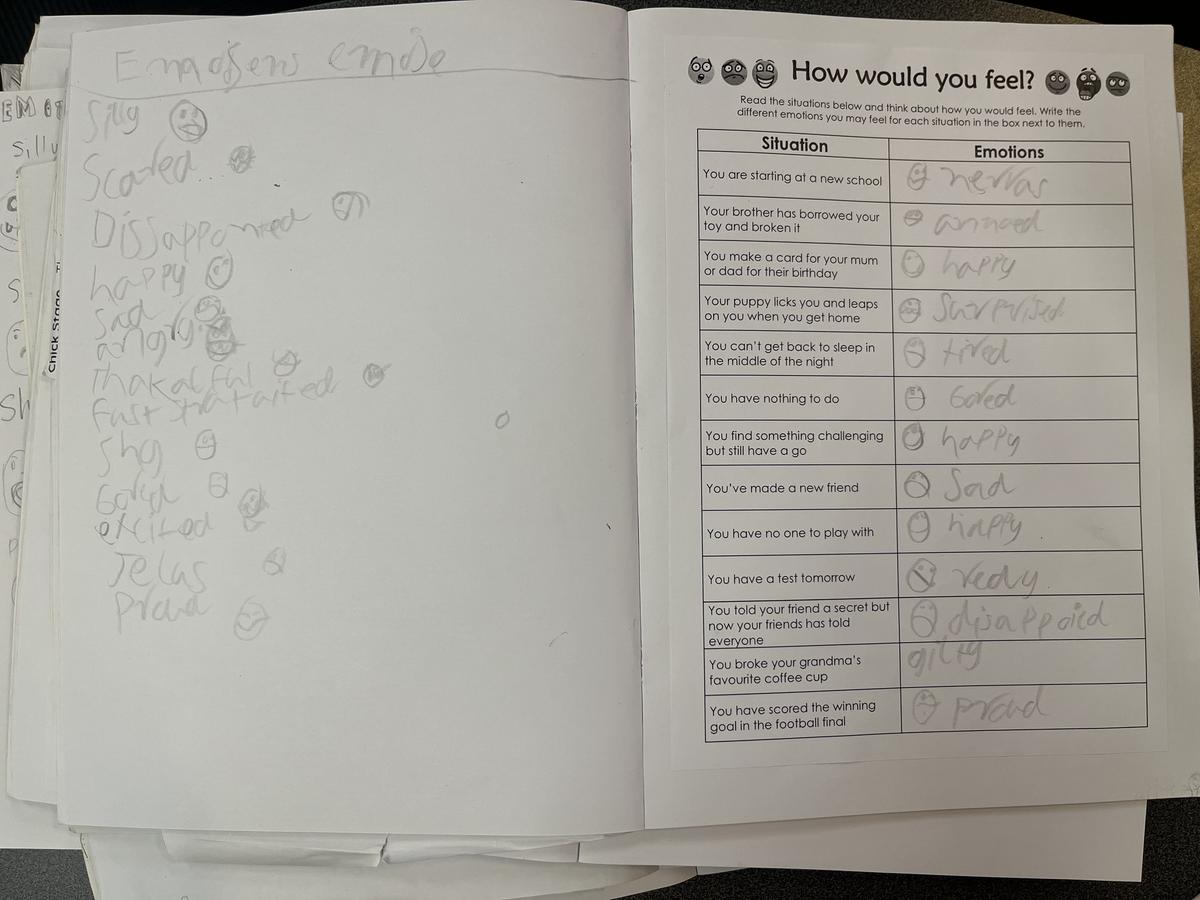 Emadfens emoje
Silly
Scared...
Dissappointed
happy
Sad
angry
thakalful
fustrataited
Shy
bored
excited
Jelus
Proud
EM
Silly
S
Sh
Chick Stage
How would you feel?
Read the situations below and think about how you would feel. Write the
different emotions you may feel for each situation in the box next to them.
Situation Emotions
You are starting at a new school nervas
Your brother has borrowed your
toy and broken it annoed
You make a card for your mum
or dad for their birthday happy
Your puppy licks you and leaps
on you when you get home Surprised
You can't get back to sleep in
the middle of the night tired
You have nothing to do bored
You find something challenging
but still have a go happy
You've made a new friend Sad
You have no one to play with happy
You have a test tomorrow redy.
You told your friend a secret but
now your friends has told
everyone disappoied
You broke your grandma's
favourite coffee cup gilty
You have scored the winning
goal in the football final proud